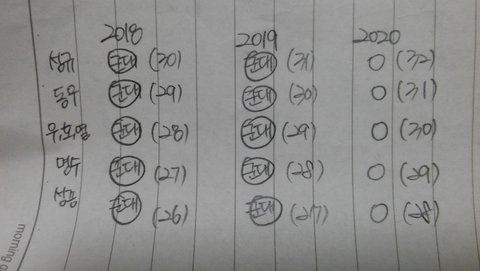 2018 2019 2020
성규 군대 (30) 군대 (31) O (32)
동우 군대 (29) 군대 (30) O (31)
우,호,열 군대 (28) 군대 (29) O (30)
명수 군대 (27) 군대 (28) O (29)
성종 군대 (26) 군대 (27) O (28)
morning